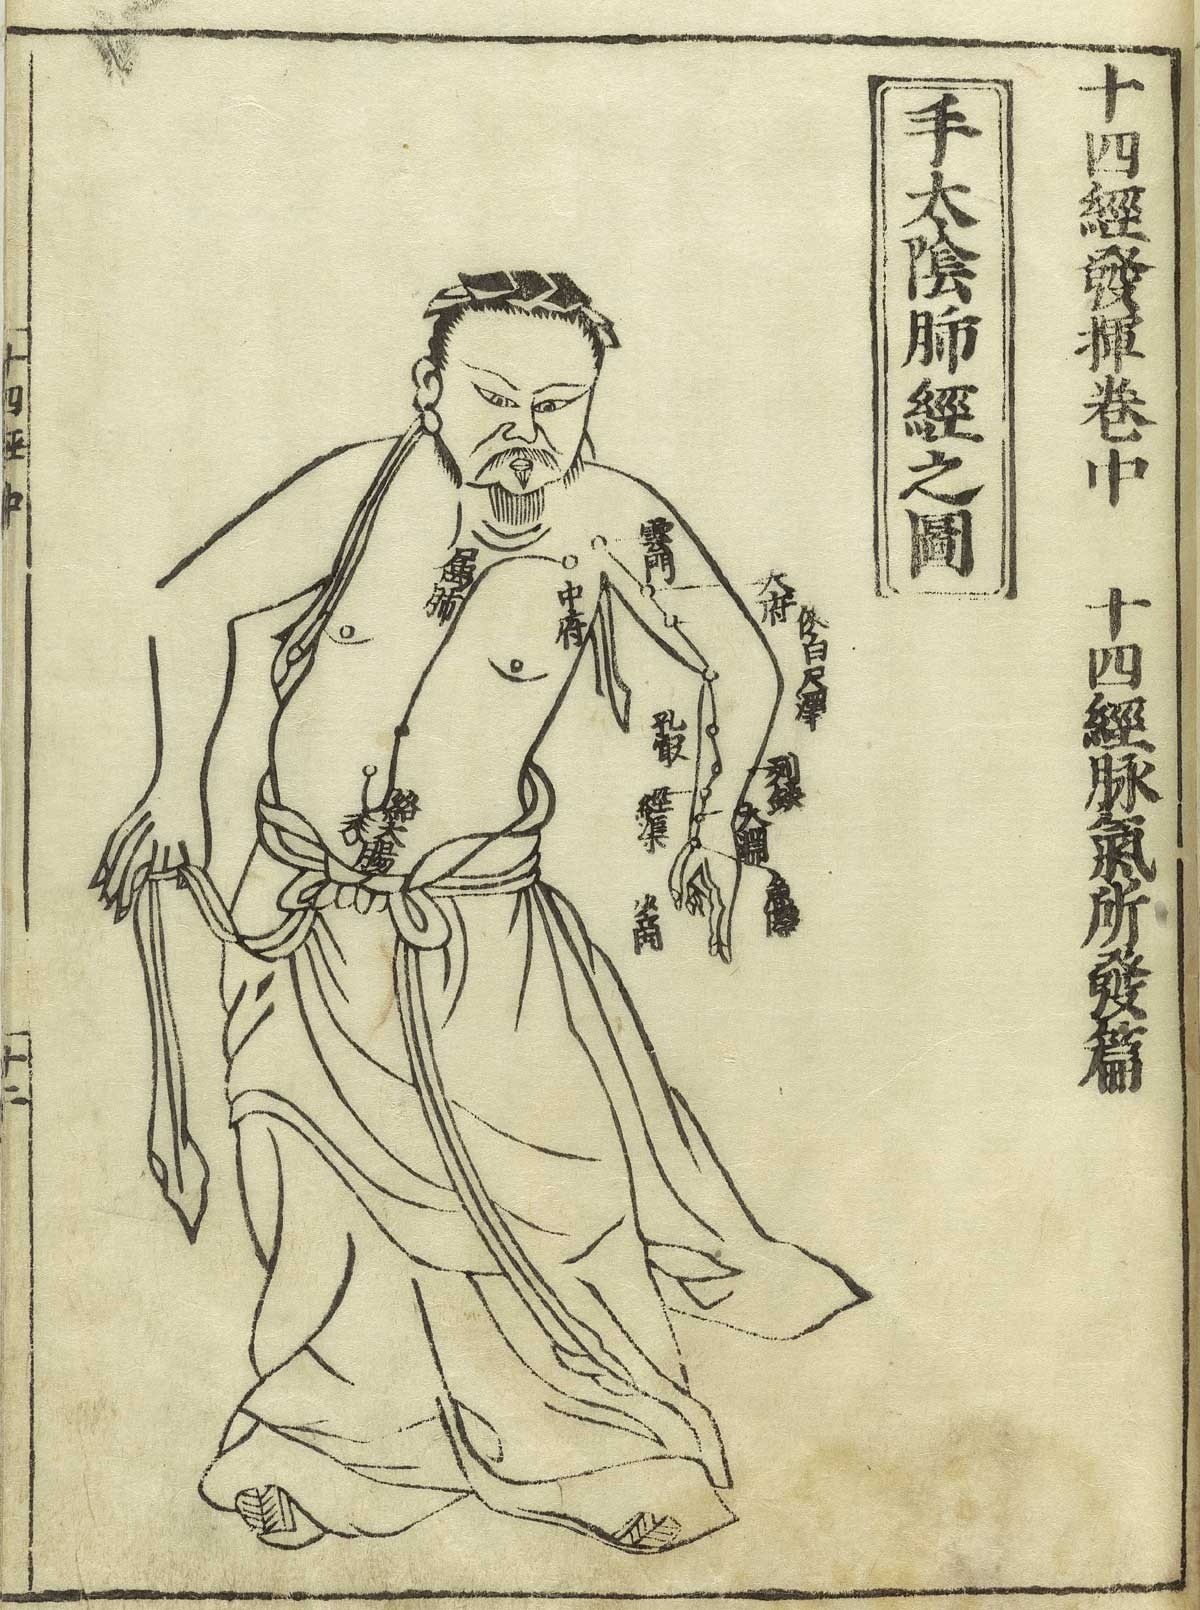 十四經發揮卷中　十四經脉氣所發篇
手太陰肺經之圖
雲門
中府
屬肺
俠白尺澤
孔最
列缺
經渠
絡大腸
十四經中
十二